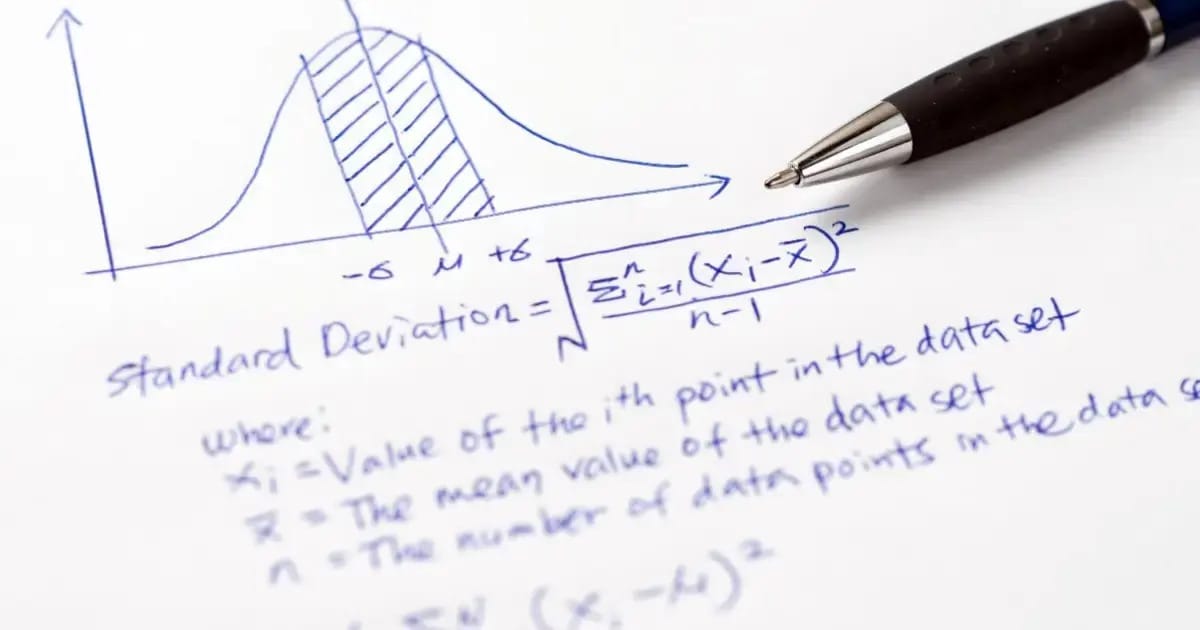 -σ μ +σ
Standard Deviation = √(Σⁿᵢ₌₁(xᵢ-x̄)²/n-1)
where:
xᵢ = Value of the iᵗʰ point in the data set
x̄ = The mean value of the data set
n = The number of data points in the data
(x -μ)²